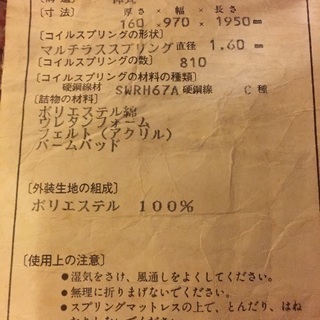 厚さ × 幅 × 長さ
〔寸 法〕 160 × 970 × 1950 ㎜
〔コイルスプリングの形状〕
マルチラススプリング 直径 1.60 ㎜
〔コイルスプリングの数〕 810
〔コイルスプリングの材料の種類〕
硬鋼線材 SWRH67A 硬鋼線 C種
〔詰物の材料〕
ポリエステル綿
ウレタンフォーム
フェルト（アクリル）
パームパッド
〔外装生地の組成〕
ポリエステル 100％
〔使用上の注意〕
●湿気をさけ、風通しをよくしてください。
●無理に折りまげないでください。
●スプリングマットレスの上で、とんだり、はね